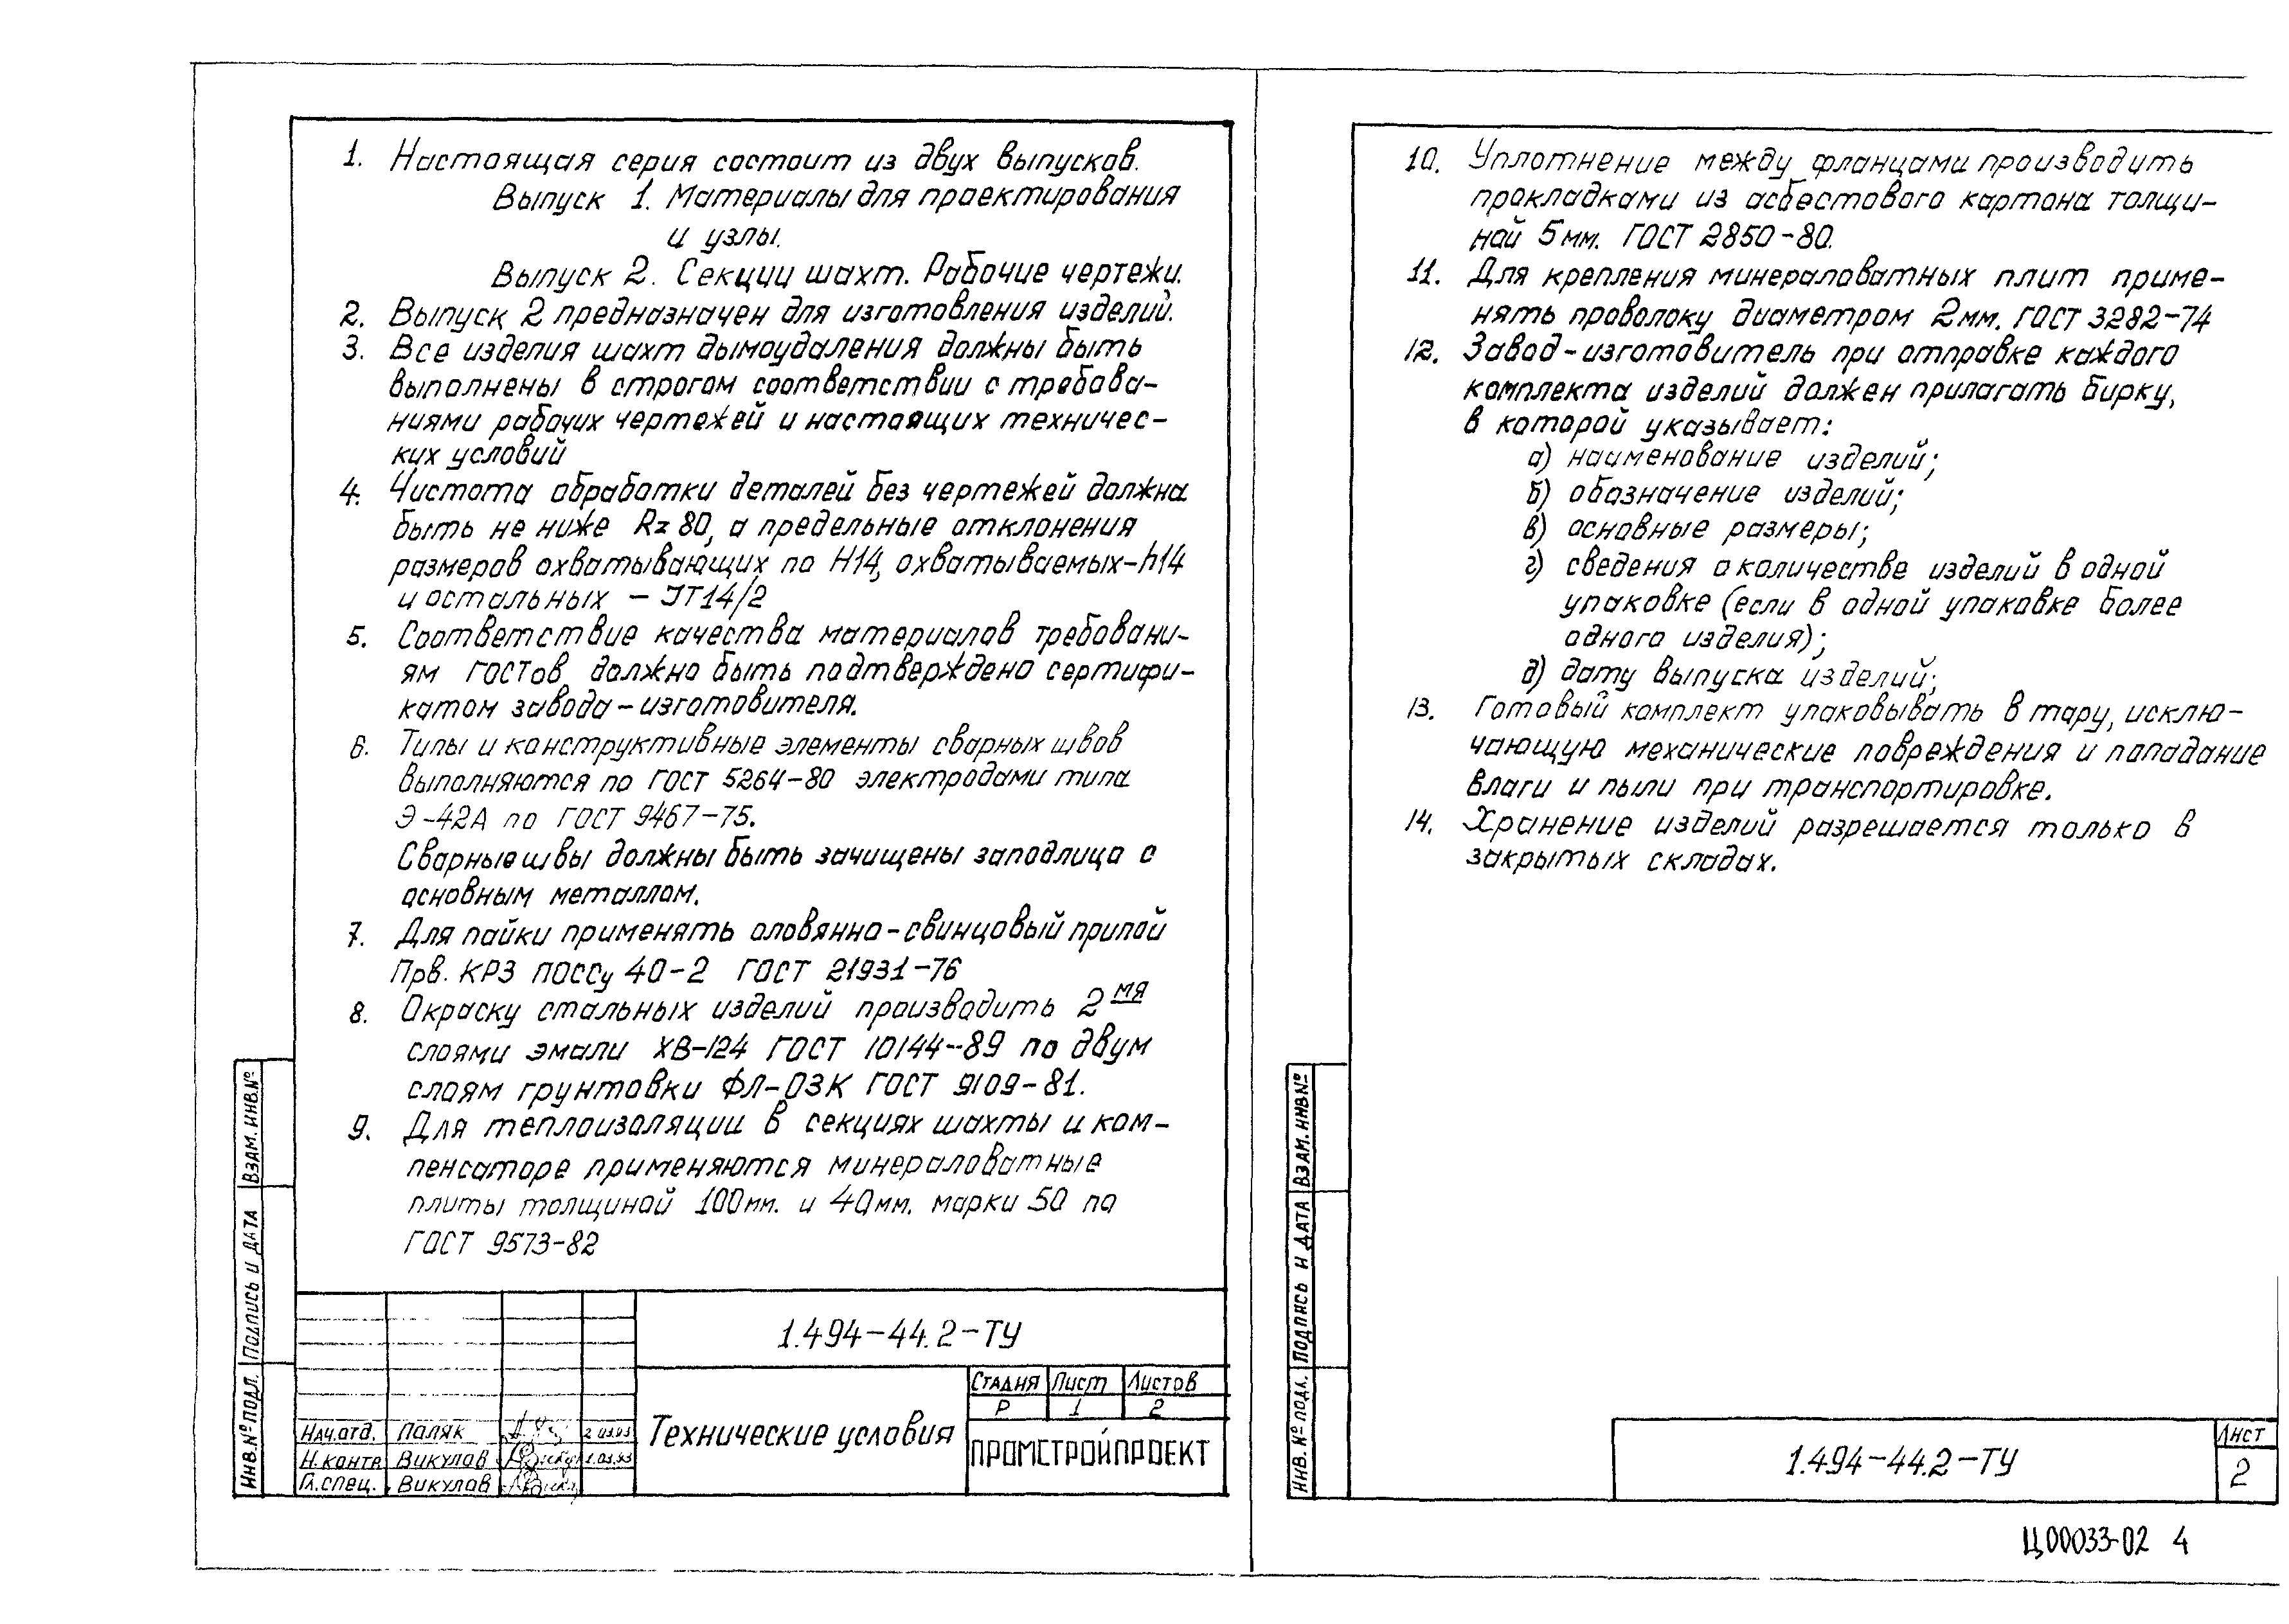 1. Настоящая серия состоит из двух выпусков.
Выпуск 1. Материалы для проектирования
и узлы.
Выпуск 2. Секции шахт. Рабочие чертежи.
2. Выпуск 2 предназначен для изготовления изделий.
3. Все изделия шахт дымоудаления должны быть
выполнены в строгом соответствии с требова-
ниями рабочих чертежей и настоящих техничес-
ких условий
4. Чистота обработки деталей без чертежей должна
быть не ниже Rz 80, а предельные отклонения
размеров охватывающих по Н14, охватываемых-h14
и остальных – JT14/2
5. Соответствие качества материалов требовани-
ям ГОСТов должно быть подтверждено сертифи-
катом завода-изготовителя.
6. Типы и конструктивные элементы сварных швов
выполняются по ГОСТ 5264-80 электродами типа
Э-42А по ГОСТ 9467-75.
Сварные швы должны быть зачищены заподлицо с
основным металлом.
7. Для пайки применять оловянно-свинцовый припой
Прв. КР3 ПОССу 40-2 ГОСТ 21931-76
8. Окраску стальных изделий производить 2мя
слоями эмали ХВ-124 ГОСТ 10144-89 по двум
слоям грунтовки ФЛ-03К ГОСТ 9109-81.
9. Для теплоизоляции в секциях шахты и ком-
пенсаторе применяются минераловатные
плиты толщиной 100мм. и 40мм. марки 50 по
ГОСТ 9573-82
1.494-44.2-ТУ
Технические условия
Стадия Лист Листов
Р 1 2
ПРОМСТРОЙПРОЕКТ
Нач.отд. Паляк
Н.контр Викулов
Гл.спец. Викулов
Инв.№ подл. Подпись и дата Взам.инв.№
10. Уплотнение между фланцами производить
прокладками из асбестового картона толщи-
ной 5мм. ГОСТ 2850-80.
11. Для крепления минераловатных плит приме-
нять проволоку диаметром 2мм. ГОСТ 3282-74
12. Завод-изготовитель при отправке каждого
комплекта изделий должен прилагать бирку,
в которой указывает:
а) наименование изделий;
б) обозначение изделий;
в) основные размеры;
г) сведения о количестве изделий в одной
упаковке (если в одной упаковке более
одного изделия);
д) дату выпуска изделий;
13. Готовый комплект упаковывать в тару, исклю-
чающую механические повреждения и попадание
влаги и пыли при транспортировке.
14. Хранение изделий разрешается только в
закрытых складах.
Инв.№ подл. Подпись и дата Взам.инв.№
1.494-44.2-ТУ
Лист
2
Ц00033-02 4